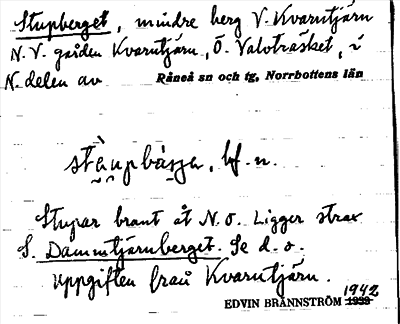 Stupberget, mindre berg V. Kvarntjärn
N.V. gården Kvarntjärn, Ö. Valvträsket, i
N. delen av Råneå sn och tg, Norrbottens län
bf. n.
Stupar brant åt N.O. Ligger strax
S. Dammtjärnberget. Se d.o.
Uppgiften från Kvarntjärn.
1942
EDVIN BRÄNNSTRÖM 1939